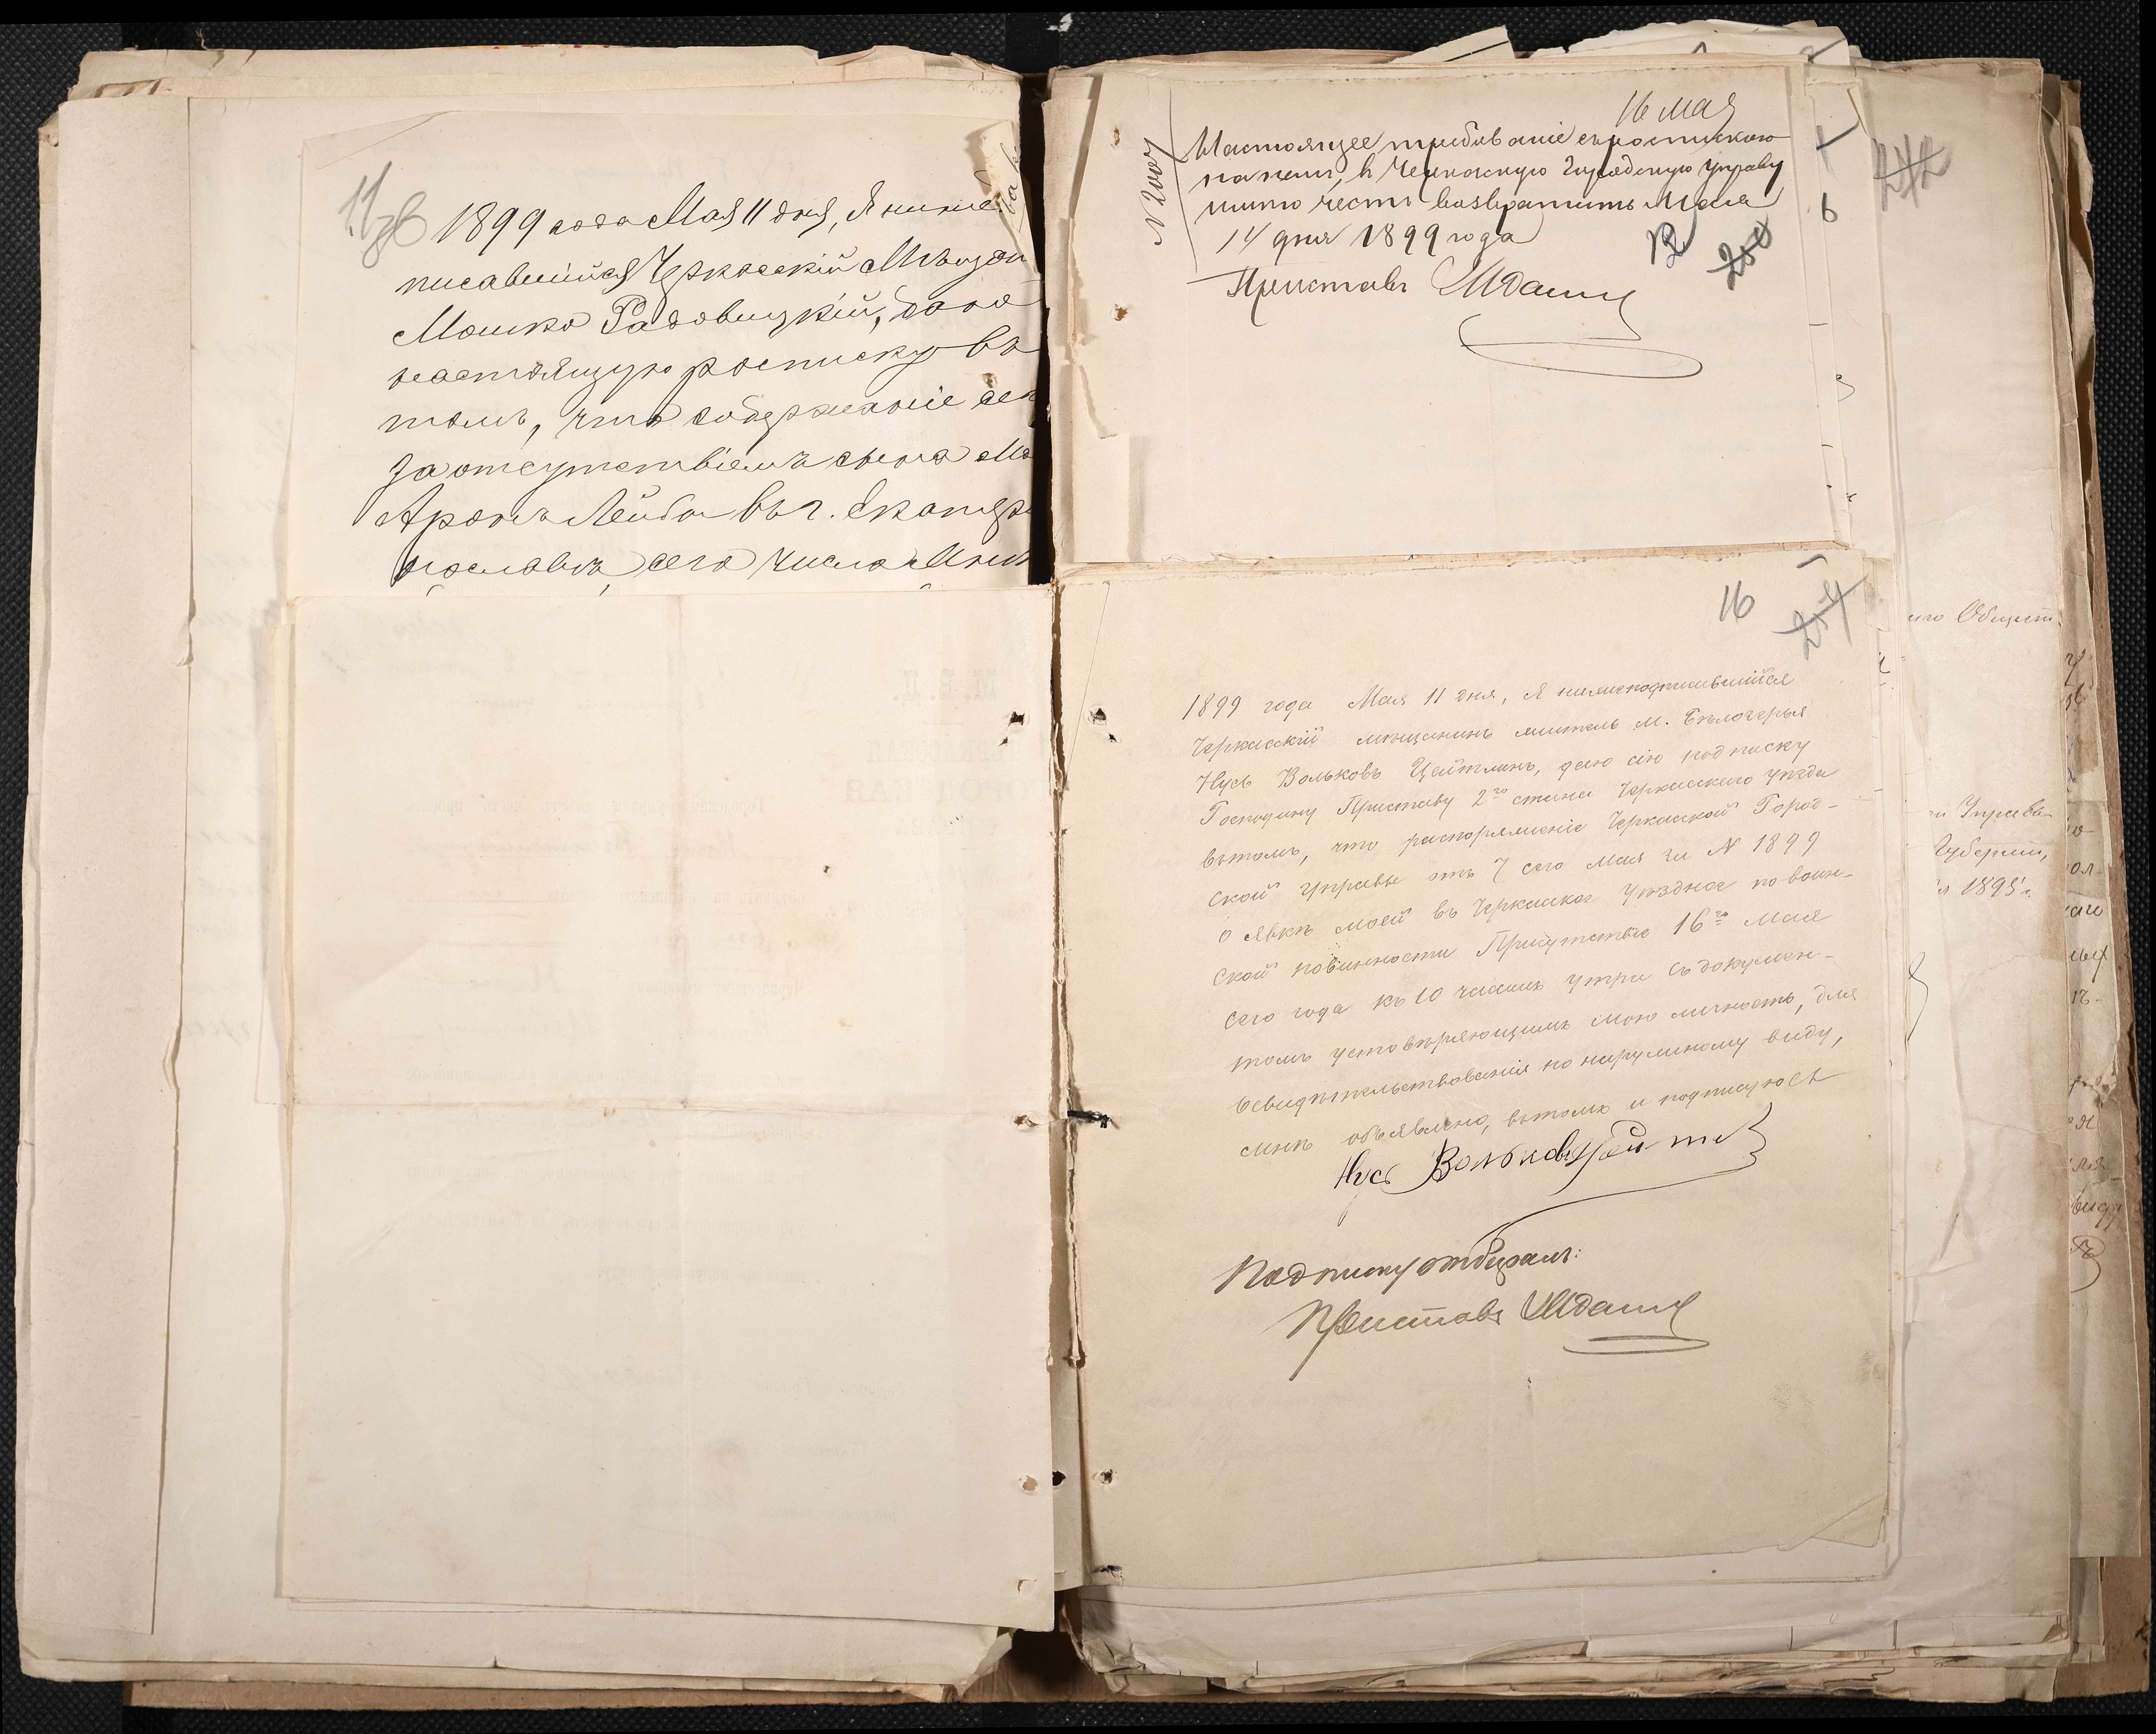 11
1899 года Мая 11 дня, Я ниже
писавшийся Черкасскій Мѣщан
Мошко Радовицкій, даю
настоящую росписку въ
томъ, что содержаніе
За отсутствіемъ сына
Аронъ Лейба въ г. Екатери
нославлѣ сего числа
16 мая
N 2007
Настоящее требованіе съ росписками
на немъ, в Черкасскую Городскую Управу
имѣю честь возвратить Мая
14 дня 1899 года
Приставъ
242
16
1899 года Мая 11 дня, Я нижеподписавшійся
Черкасскій мѣщанинъ житель м. Бѣлозерья
Нусь Вольковъ Цейтлинъ, даю сію подписку
Господину Приставу 2го стана Черкасскаго уѣзда
вътомъ, что распоряженіе Черкасской Город-
ской Управы отъ 7 сего Мая за N 1899
о явкѣ моей въ Черкасское Уѣздное по воин-
ской повинности Присутствіе 16го Мая
сего года къ 10 часамъ утра съ докумен-
томъ устовѣряющимъ мою личность, для
освидѣтельствованія по наружному виду,
мнѣ объявлено, вътомъ и подписуюсь
Нусь Вольковъ
Подписку отбиралъ:
Приставъ
Общест.
Управы
Губерніи,
1895 г.
виду